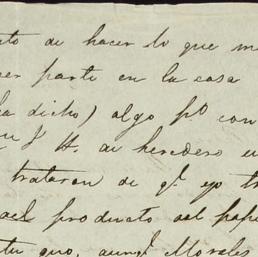 to de hacer lo que me
er parte en la casa
ha dicho) algo p.º con
y H. de heredero e
trataron de q.e yo tr
del producto del pap
tu quo, aunq.e Morales